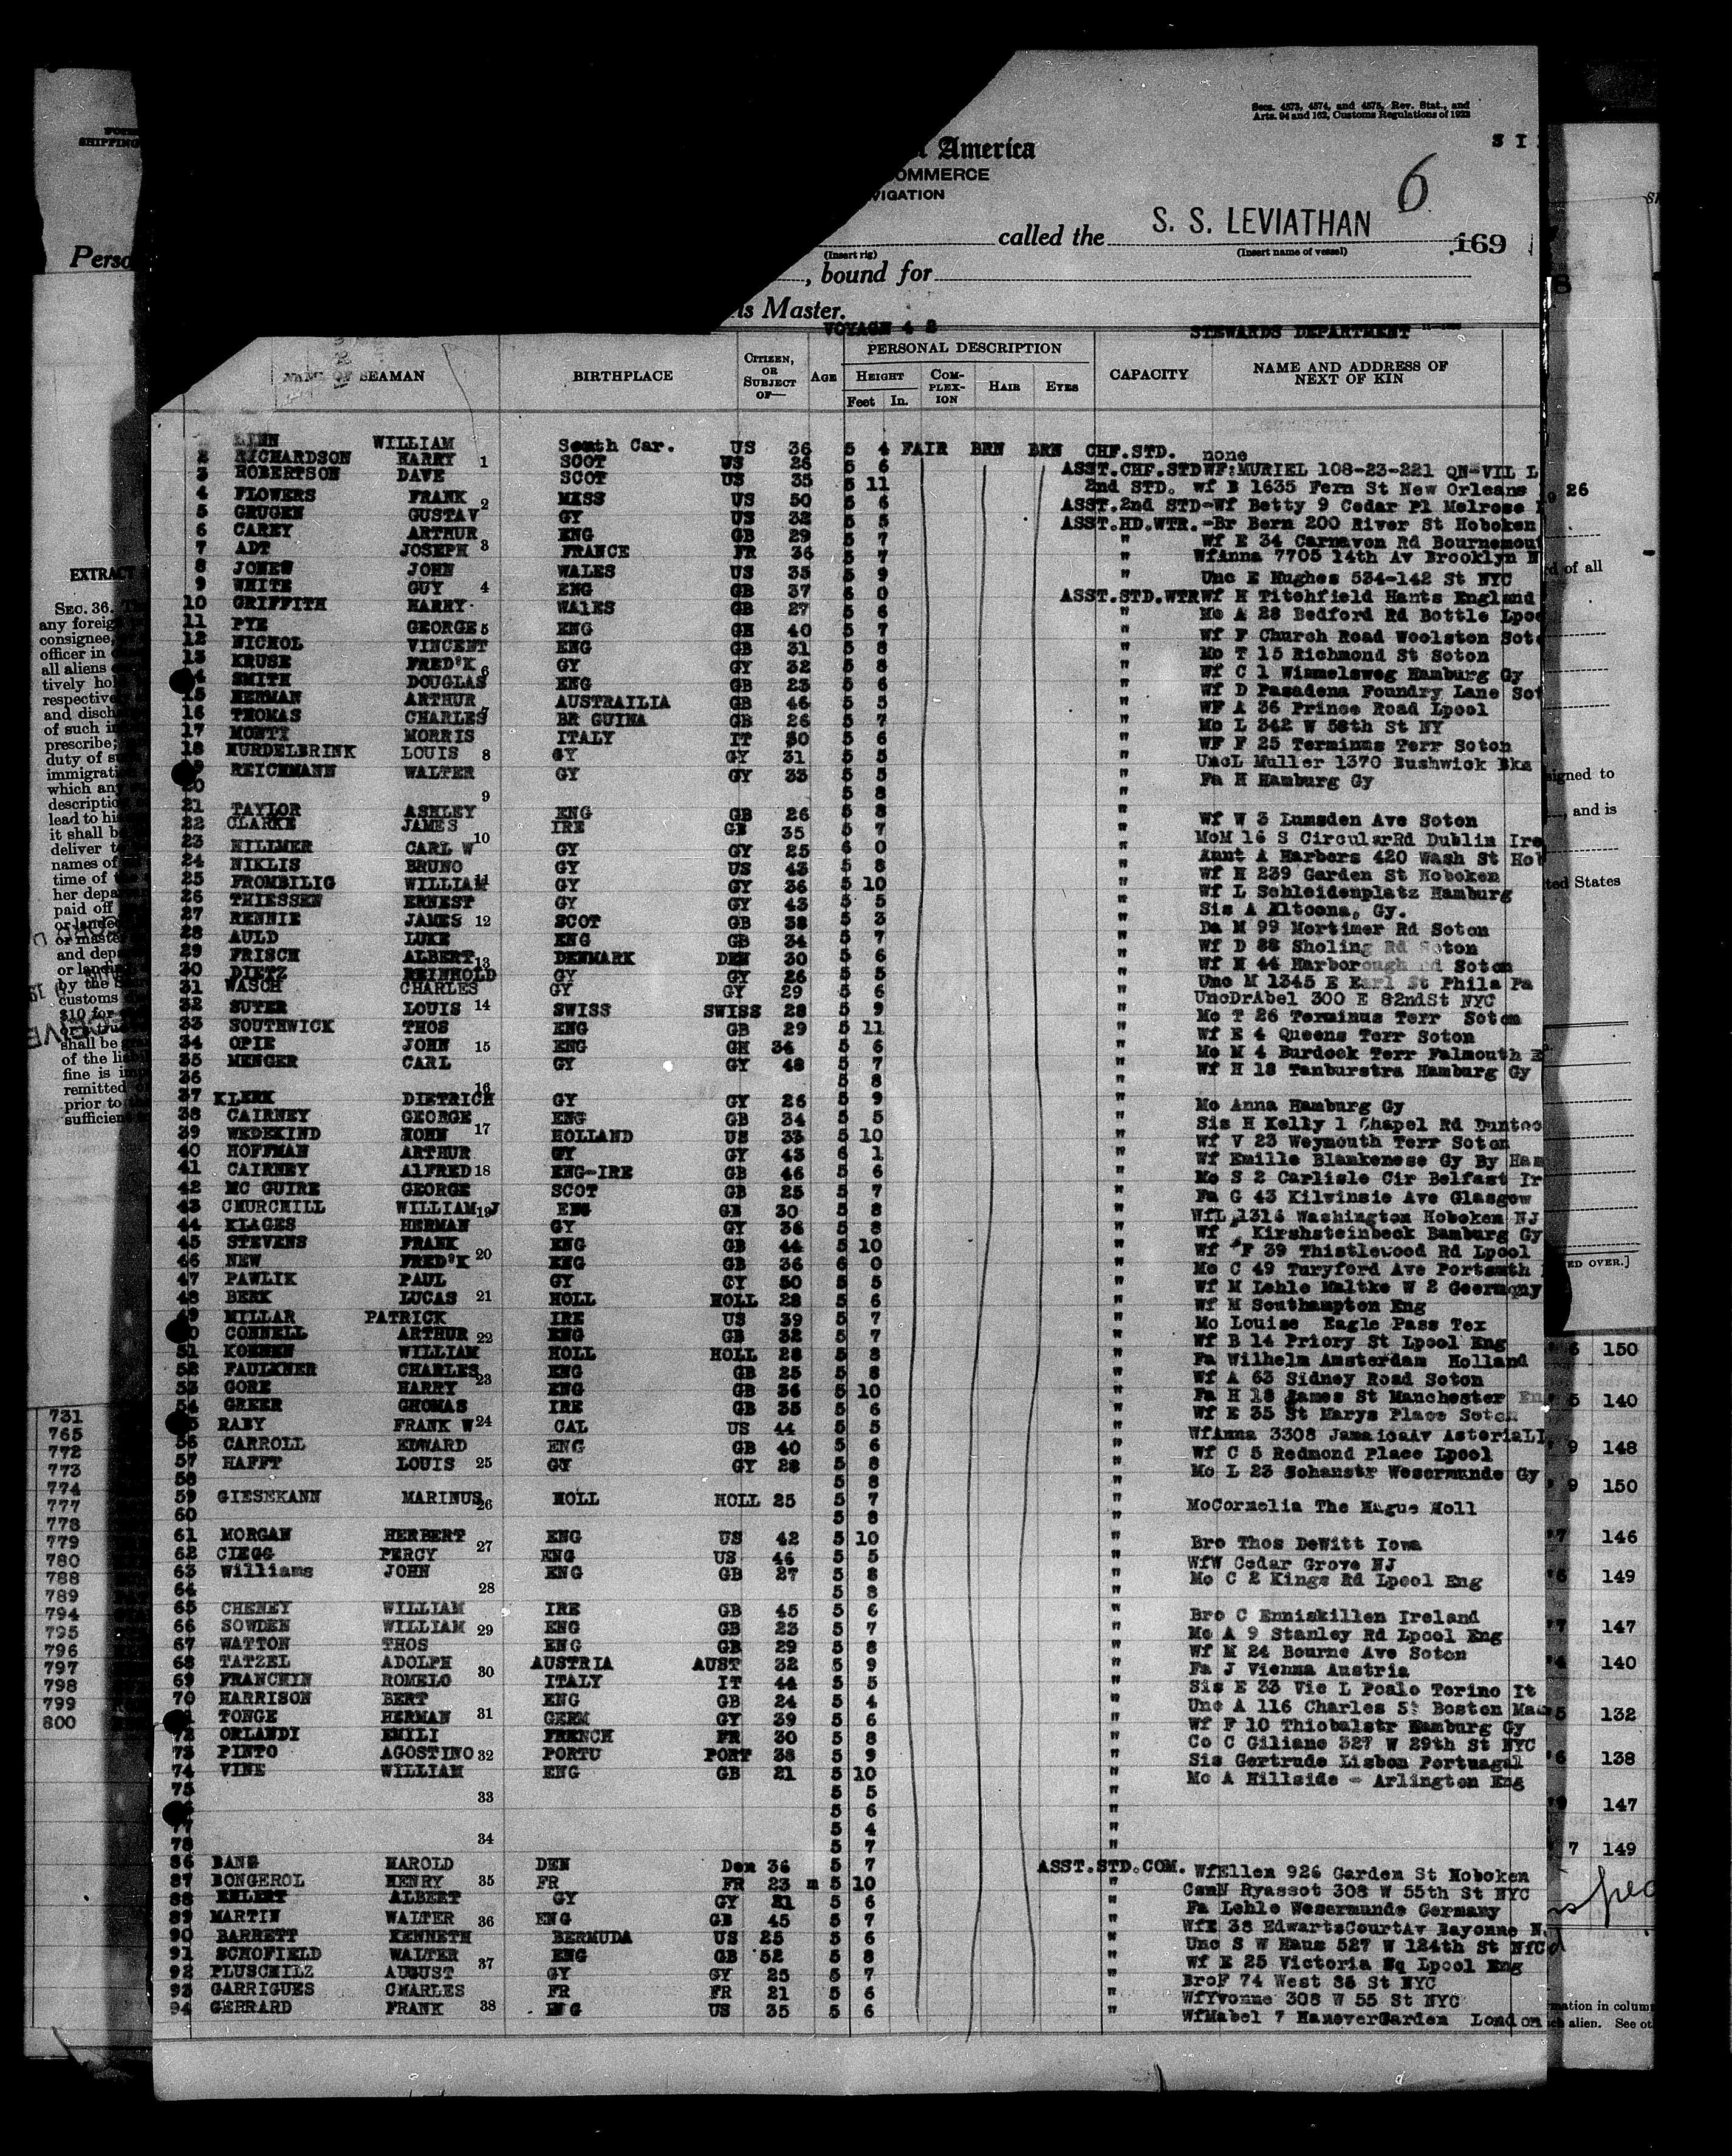 Secs. 4573, 4574, and 4575, Rev. Stat., and
Arts. 94 and 162, Customs Regulations of 1922
America
OMMERCE
VIGATION
6
called the S. S. LEVIATHAN 169
(Insert rig) (Insert name of vessel)
, bound for
is Master.
VOYAGE 4 2 STEWARDS DEPARTMENT
NAME OF SEAMAN BIRTHPLACE CITIZEN, OR SUBJECT OF— AGE PERSONAL DESCRIPTION HEIGHT Feet In. COM-PLEX-ION HAIR EYES CAPACITY NAME AND ADDRESS OF NEXT OF KIN
WILLIAM South Car. US 36 5 4 FAIR BRN BRN CHF.STD. none
2 RICHARDSON HARRY 1 SCOT US 26 5 6 ASST.CHF.STD WF:MURIEL 108-23-221 QN-VIL L
3 ROBERTSON DAVE SCOT US 35 5 11 2nd STD. Wf B 1635 Fern St New Orleans
4 FLOWERS FRANK 2 MASS US 50 5 6 ASST.2nd STD-Wf Betty 9 Cedar Pl Melrose
5 GRUGEN GUSTAV GY US 32 5 5 ASST.HD.WTR.-Br Bern 200 River St Hoboken
6 CAREY ARTHUR ENG GB 29 5 7 " Wf E 34 Carnavon Rd Bournemout
7 ADT JOSEPH 3 FRANCE FR 36 5 7 " WfAnna 7705 14th Av Brooklyn N
8 JONES JOHN WALES US 35 5 9 " Unc E Hughes 534-142 St NYC
9 WHITE GUY 4 ENG GB 37 6 0 ASST.STD.WTR Wf H Titchfield Hants England
10 GRIFFITH HARRY WALES GB 27 5 6 " Mo A 28 Bedford Rd Bottle Lpoo
11 PYE GEORGE 5 ENG GB 40 5 7 " Wf F Church Road Woolston Soto
12 NICHOL VINCENT ENG GB 31 5 8 " Mo T 15 Richmond St Soton
13 KRUSE FRED'K 6 GY GY 32 5 8 " Wf C 1 Wimmelsweg Hamburg Gy
SMITH DOUGLAS ENG GB 23 5 6 " Wf D Pasadena Foundry Lane Sot
15 HERMAN ARTHUR AUSTRAILIA GB 46 5 5 " WF A 36 Prince Road Lpool
16 THOMAS CHARLES 7 BR GUINA GB 26 5 7 " Mo L 342 W 58th St NY
17 MONTY MORRIS ITALY IT 30 5 6 " WF F 25 Terminus Terr Soton
18 MURDELBRINK LOUIS 8 GY GY 31 5 5 " UncL Muller 1370 Bushwick Bkn
REICHMANN WALTER GY GY 33 5 5 " Fa H Hamburg Gy
20 9 5 8 "
21 TAYLOR ASHLEY ENG GB 26 5 8 " Wf W 3 Lumsden Ave Soton
22 CLARKE JAMES IRE GB 35 5 7 " MoM 16 S CircularRd Dublin Ire
23 HILLMER CARL W 10 GY GY 25 6 0 " Aunt A Harbers 420 Wash St Hob
24 NIKLIS BRUNO GY US 43 5 8 " Wf H 239 Garden St Hoboken
25 FROMBILIG WILLIAM 11 GY GY 36 5 10 " Wf L Schleidenplatz Hamburg
26 THIESSEN ERNEST GY GY 43 5 5 " Sis A Altoona, Gy.
27 RENNIE JAMES 12 SCOT GB 38 5 3 " Da M 99 Mortimer Rd Soton
28 AULD LUKE ENG GB 34 5 7 " Wf D 88 Sholing Rd Soton
29 FRISCH ALBERT 13 DENMARK DEN 30 5 6 " Wf N 44 Harborough Rd Soton
30 DIETZ REINHOLD GY GY 26 5 5 " Unc M 1345 E Earl St Phila Pa
31 WASCH CHARLES GY GY 29 5 6 " UncDrAbel 300 E 82ndSt NYC
32 SUTER LOUIS 14 SWISS SWISS 28 5 9 " Mo T 26 Terminus Terr Soton
33 SOUTHWICK THOS ENG GB 29 5 11 " Wf E 4 Queens Terr Soton
34 OPIE JOHN 15 ENG GB 34 5 6 " Mo M 4 Burdock Terr Falmouth E
35 MENGER CARL GY GY 48 5 7 " Wf H 18 Tanburstra Hamburg Gy
36 16 5 8 "
37 KLERK DIETRICH GY GY 26 5 9 " Mo Anna Hamburg Gy
38 CAIRNEY GEORGE ENG GB 34 5 5 " Sis H Kelly 1 Chapel Rd Duntoo
39 WEDEKIND 17 HOLLAND US 33 5 10 " Wf V 23 Weymouth Terr Soton
40 HOFFMAN ARTHUR GY GY 43 6 1 " Wf Emille Blankenese Gy By Ham
41 CAIRNEY AlFRED 18 ENG-IRE GB 46 5 6 " Mo S 2 Carlisle Cir Belfast Ir
42 MC GUIRE GEORGE SCOT GB 25 5 7 " Fa G 43 Kilwinsie Ave Glasgow
43 CHURCHILL WILLIAM J 19 ENG GB 30 5 8 " WfL 1316 Washington Hoboken NJ
44 KLAGES HERMAN GY GY 36 5 8 " Wf Kirshsteinbeck Bamburg Gy
45 STEVENS FRANK ENG GB 44 5 10 " Wf F 39 Thistlewood Rd Lpool
46 NEW FRED'K 20 ENG GB 36 6 0 " Mo C 49 Turyford Ave Portsmth
47 PAWLIK PAUL GY GY 50 5 5 " Wf M Lehle Maltke W 2 Geermqny
48 BERK LUCAS 21 HOLL HOLL 28 5 6 " Wf M Southampton Eng
49 MILLAR PATRICK IRE US 39 5 7 " Mo Louise Eagle Pass Tex
CONNELL ARTHUR 22 ENG GB 32 5 7 " Wf B 14 Priory St Lpool Eng
51 WILLIAM HOLL HOLL 28 5 8 " Fa Wilhelm Amsterdam Holland
52 FAULKNER CHARLES 23 ENG GB 25 5 8 " Wf A 63 Sidney Road Soton
53 GORE HARRY ENG GB 36 5 10 " Fa H 18 James St Manchester En
54 GREER GHOMAS IRE GB 35 5 6 " Wf E 35 St Marys Place Soton
RABY FRANK W 24 CAL US 44 5 5 " WfAnna 3308 JamaicaAv AstoriaLI
56 CARROLL EDWARD ENG GB 40 5 6 " Wf C 5 Redmond Place Lpool
57 HAFFT LOUIS 25 GY GY 28 5 8 " Mo L 23 Sohanstr Wesermunde Gy
58 5 8 "
59 GIESEKANN MARINUS 26 HOLL HOLL 25 5 7 " MoCornelia The Hague Holl
60 5 8 "
61 MORGAN HERBERT 27 ENG US 42 5 10 " Bro Thos DeWitt Iowa
62 CIEGG PERCY ENG US 46 5 5 " WfW Cedar Grove NJ
63 Williams JOHN ENG GB 27 5 8 " Mo C 2 Kings Rd Lpool Eng
64 28 5 8 "
65 CHENEY WILLIAM IRE GB 45 5 6 " Bro C Enniskillen Ireland
66 SOWDEN WILLIAM 29 ENG GB 23 5 7 " Mo A 9 Stanley Rd Lpool Eng
67 WATTON THOS ENG GB 29 5 8 " Wf M 24 Bourne Ave Soton
68 TATZEL ADOLPH 30 AUSTRIA AUST 32 5 9 " Fa J Vienna Austria
69 FRANCHIN ROMELO ITALY IT 44 5 5 " Sis E 33 Vie L Poalo Torino It
70 HARRISON BERT ENG GB 24 5 4 " Unc A 116 Charles St Boston Mas
TONGE HERMAN 31 GERM GY 39 5 6 " Wf F 10 Thiobalstr Hamburg Gy
72 ORLANDI EMILI FRENCH FR 30 5 8 " Co C Giliano 327 W 29th St NYC
73 PINTO AGOSTINO 32 PORTU PORT 38 5 9 " Sis Gertrude Lisbon Portuagal
74 VINE WILLIAM ENG GB 21 5 10 " Mo A Hillside - Arlington Eng
75 33 5 5 "
5 6 "
77 34 5 4 "
78 5 7 "
86 BANG HAROLD DEN Den 36 5 7 ASST.STD.COM. WfEllen 926 Garden St Hoboken
87 BONGEROL HENRY 35 FR FR 23 m 5 10 " CsnN Ryassot 308 W 55th St NYC
88 EHLERT ALBERT GY GY 21 5 6 " Fa Lehle Wesermunde Germany
89 MARTIN WALTER 36 ENG GB 45 5 7 " WfE 38 EdwartsCourtAv Bayonne N.
90 BARRETT KENNETH BERMUDA US 25 5 6 " Unc S W Haus 527 W 124th St NYC
91 SCHOFIELD WALTER 37 ENG GB 52 5 8 " Wf E 25 Victoria Sq Lpool Eng
92 PLUSCHILZ AUGUST GY GY 25 5 7 " BroF 74 West 86 St NYC
93 GARRIGUES CHARLES FR FR 21 5 6 " WfYvonne 308 W 55 St NYC
94 GERRARD FRANK 38 ENG US 35 5 6 " WfMabel 7 HanoverGarden London
SHIPPING
Perso
EXTRACT
SEC. 36.
any foreig
consignee,
officer in
all aliens
tively hol
respective
and disch
of such in
prescribe;
duty of su
immigrati
which any
descriptio
lead to his
it shall be
deliver t
names of
time of
her depa
paid off
or landed
or maste
and depa
or landin
by the
customs
$10 for
shall be
of the lia
fine is im
remitted
prior to
sufficient
731
765
772
773
774
777
778
779
780
788
789
794
795
796
797
798
799
800
S I
26
d of all
signed to
, and is
ted States
ED OVER.]
6 150
5 140
9 148
9 150
7 146
6 149
7 147
4 140
5 132
6 138
9 147
7 149
mation in colum
ch alien. See ot